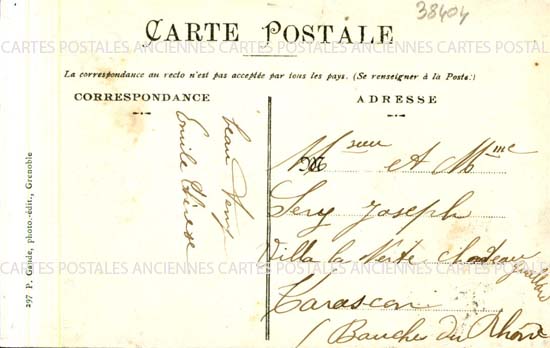 38404
CARTE POSTALE
CARTES POSTALES ANCIENNES CARTES POSTALES ANCIENNES CARTES POSTALES
La correspondance au recto n'est pas acceptée par tous les pays. (Se renseigner à la Poste.)
CORRESPONDANCE
Emile
297 P. Gaude, photo.-édit., Grenoble
ADRESSE
Msieu et Mme
Joseph
Villa la Verte
Tarascon
(Bouches du Rhône
CARTES POSTALES ANCIENNES CARTES POSTALES ANCIENNES CARTES POSTALES